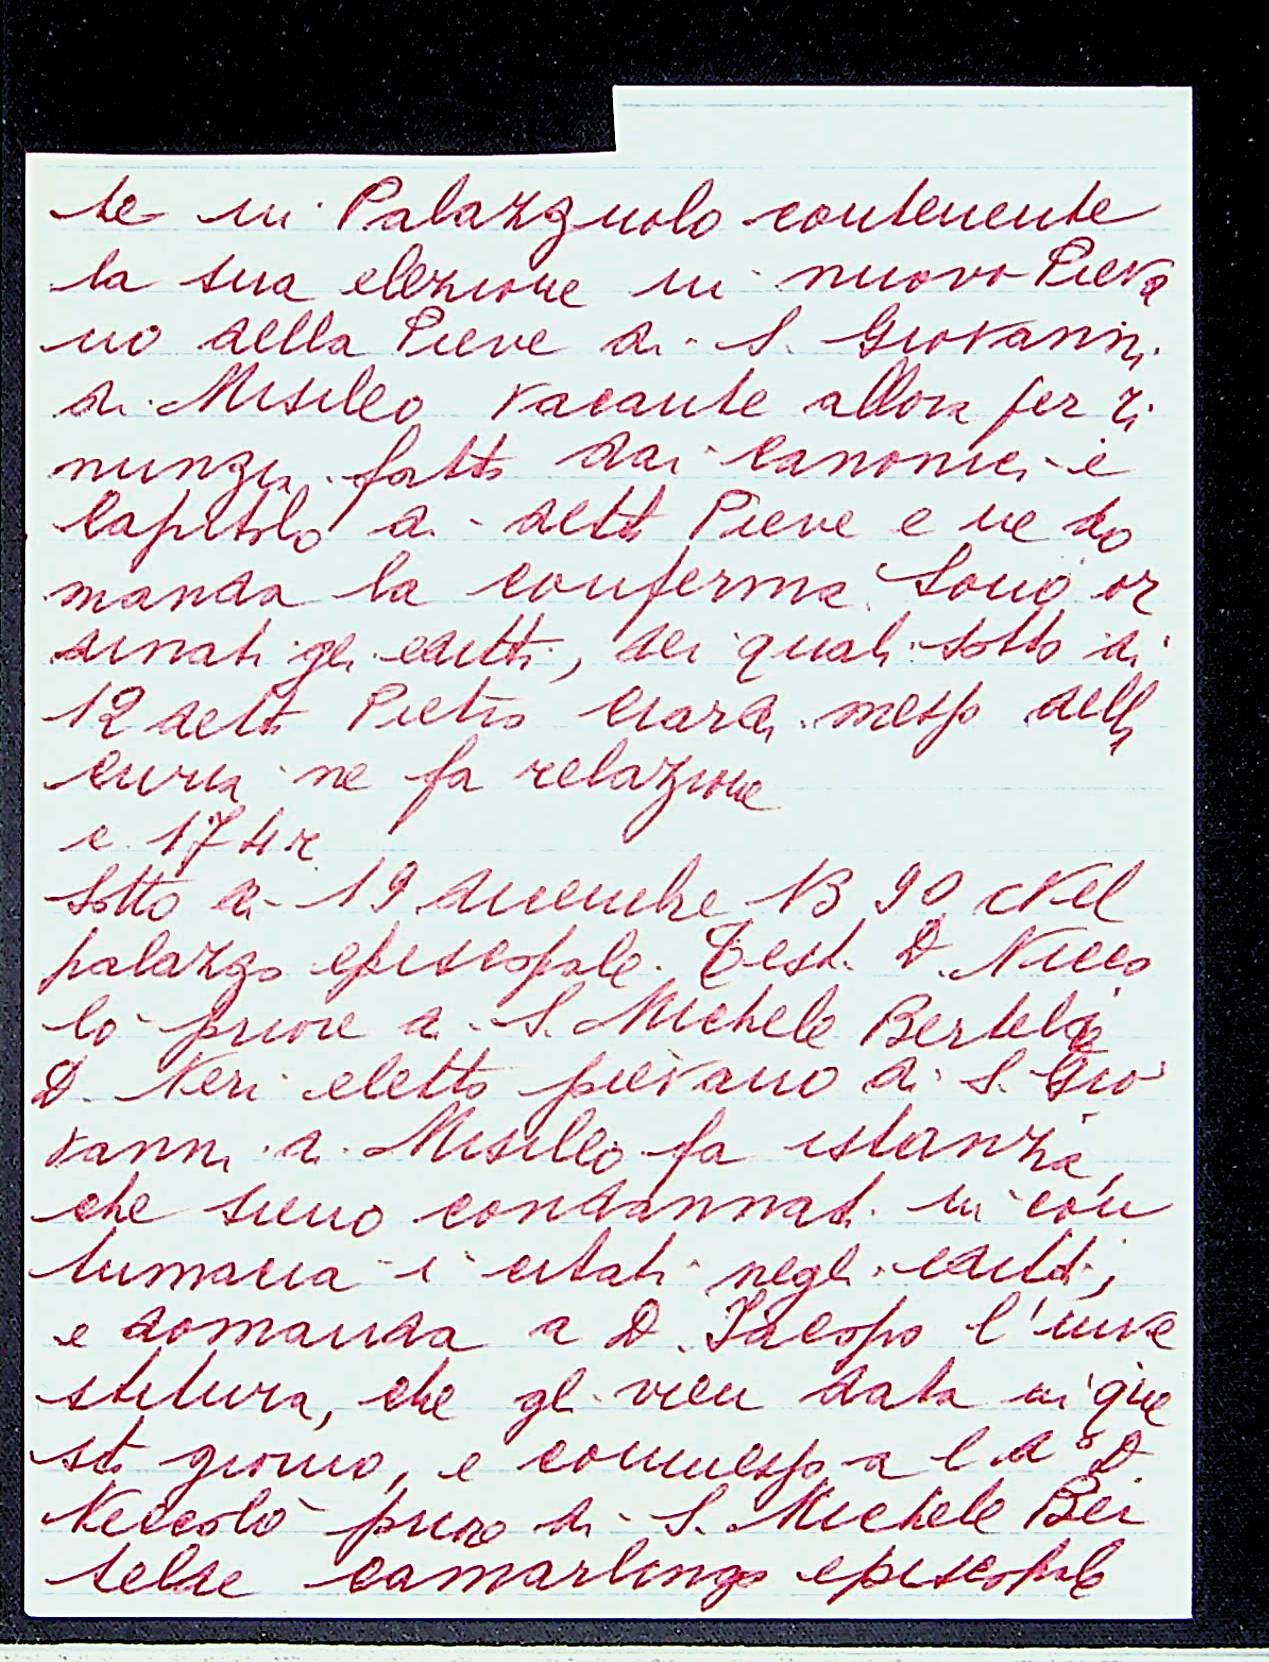 te in Palazzuolo contenente
la sua elezione in nuovo Pieva
no della Pieve di S. Giovanni
di Misileo vacante allora per ri
nunzia fatta dai canonici e
Capitolo di detta Pieve e ne do
manda la conferma. Sono or
dinati gli editti, dei quali sotto di
12 detto Pietro messo della
curia ne fa relazione
c. 174r
Sotto di 19 dicembre 1390 Nel
palazzo episcopale. Test. D. Nicco
lò priore di S. Michele Bertelde
D. Neri eletto pievano di S. Gio
vanni di Misileo fa istanza,
che sieno condannati in con
tumacia i citati negli editti,
e domanda a D. Jacopo l'inve
stitura, che gli vien data in que
sto giorno, e commesso a l d° D.
Niccolò priore di S. Michele Ber
telde camarlingo episcopale